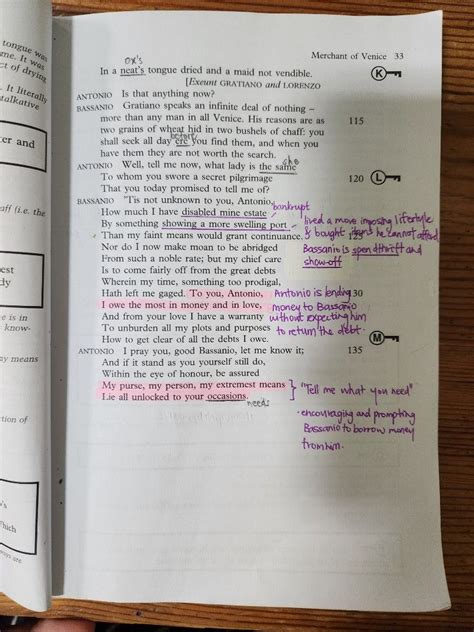 Merchant of Venice 33
ox's
In a neat's tongue dried and a maid not vendible.
[Exeunt GRATIANO and LORENZO
K
ANTONIO Is that anything now?
BASSANIO Gratiano speaks an infinite deal of nothing –
more than any man in all Venice. His reasons are as 115
two grains of wheat hid in two bushels of chaff: you
before
shall seek all day ere you find them, and when you
have them they are not worth the search.
she
ANTONIO Well, tell me now, what lady is the same
To whom you swore a secret pilgrimage 120 L
That you today promised to tell me of?
BASSANIO 'Tis not unknown to you, Antonio,
How much I have disabled mine estate bankrupt
By something showing a more swelling port lived a more imposing lifestyle
Than my faint means would grant continuance. & bought items he cannot afford
Nor do I now make moan to be abridged Bassanio is spendthrift and
From such a noble rate; but my chief care show-off
Is to come fairly off from the great debts
Wherein my time, something too prodigal,
Hath left me gaged. To you, Antonio, Antonio is lending 130
I owe the most in money and in love, money to Bassanio
And from your love I have a warranty without expecting him
To unburden all my plots and purposes to return the debt.
How to get clear of all the debts I owe. M
ANTONIO I pray you, good Bassanio, let me know it; 135
And if it stand as you yourself still do,
Within the eye of honour, be assured
My purse, my person, my extremest means "Tell me what you need"
Lie all unlocked to your occasions.
needs
· encouraging and prompting
Bassanio to borrow money
from him.
tongue was
me. It was
ct of drying
It literally
talkative
ter and
aff (i.e. the
est
dy
e is in
know-
ay means
tion of
Which